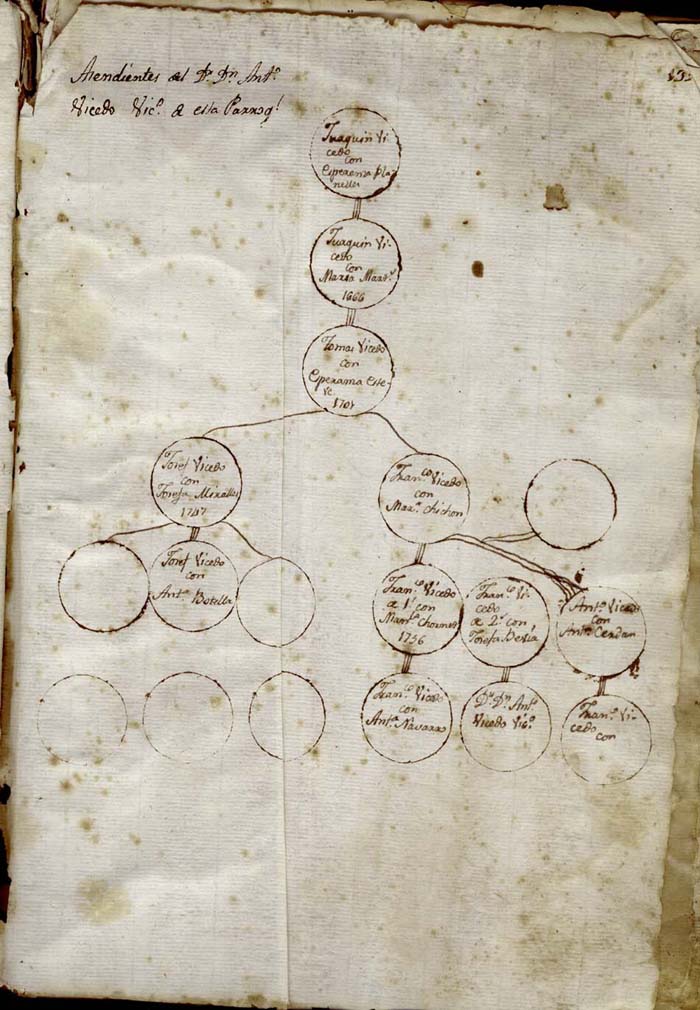 Asendientes del Dr. Dn. Antº
Vicedo Vicº de esta Parroql
Juaquin Vi-
cedo
con
Esperansa Pla-
nelles
Juaquin Vi-
cedo
con
Maria Mart.
1666
Tomas Vicedo
con
Esperansa Este-
ve
Josef Vicedo
con
Josefa Miralles
1747
Franco Vicedo
con
Marª Chichon
Josef Vicedo
con
Antª Botella
Franº Vicedo
de 1ª con
1756
Franº Vi-
cedo
de 2ª con
Josefa Bevia
Antº Vicedo
con
Antª Cerdan
Franº Vicedo
con
Antª Navarro
Dr. Dn. Antº
Vicedo Vicº
Franº Vi-
cedo
con